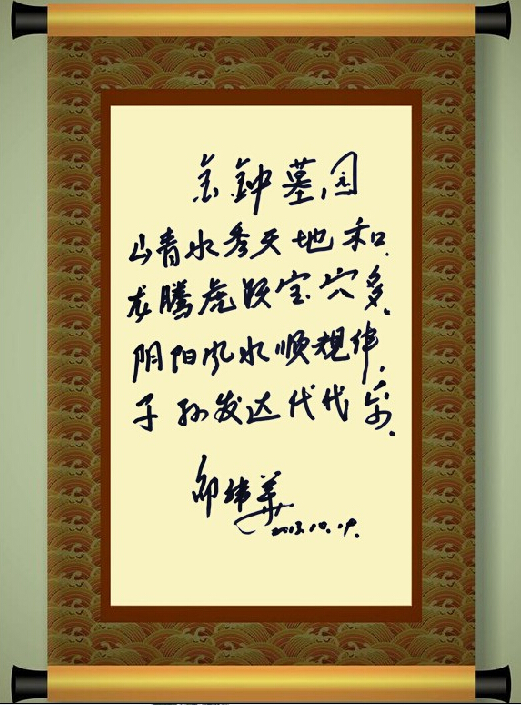 金钟墓园
山青水秀天地和.
龙腾虎跃宝穴多.
阴阳风水顺规律.
子孙发达代代乐.
邹伟华
2013.10.19.